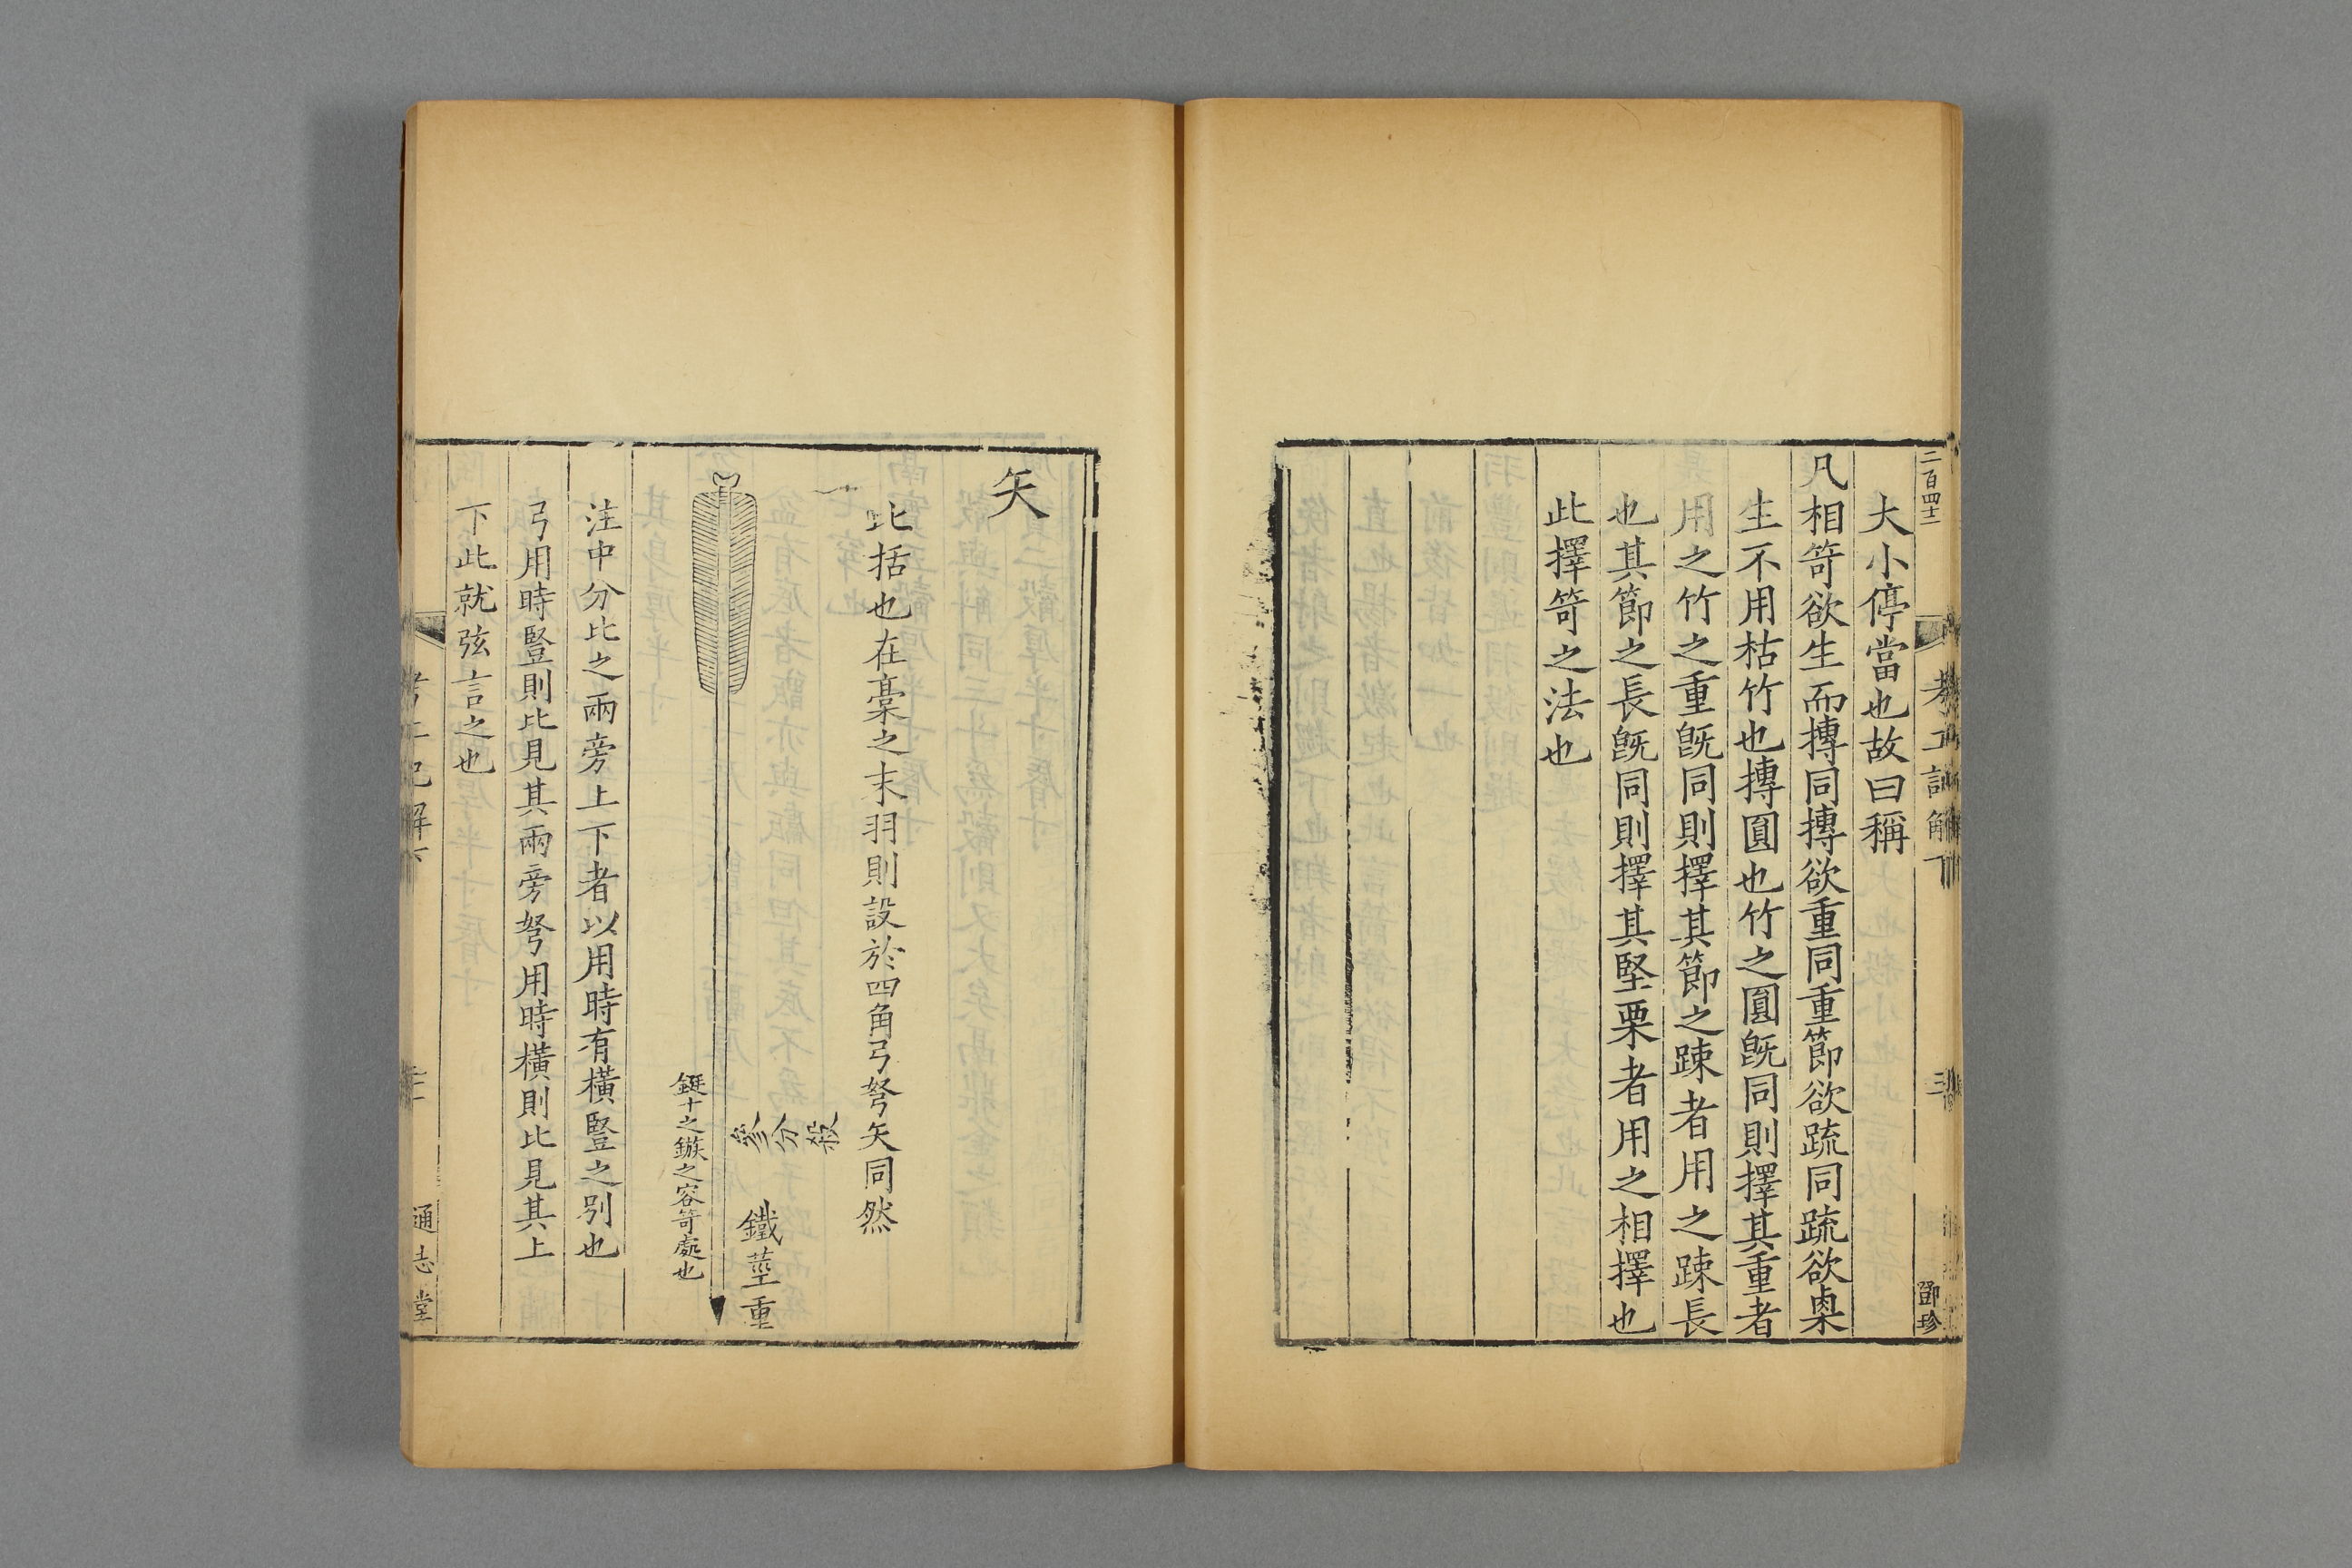 二百四十二
大小停當也故曰稱
凡相笴欲生而摶同摶欲重同重節欲疏同疏欲㮚
生不用枯竹也摶圓也竹之圓旣同則擇其重者
用之竹之重旣同則擇其節之踈者用之踈長
也其節之長旣同則擇其堅栗者用之相擇也
此擇笴之法也
考工記解下
鄧珍
矢
比括也在槀之末羽則設於四角弓弩矢同然
殺
分
參
鐵莖重
鋌十之鏃之容笴處也
注中分比之兩旁上下者以用時有橫豎之別也
弓用時豎則比見其兩旁弩用時橫則比見其上
下此就弦言之也
考工記解下
通志堂